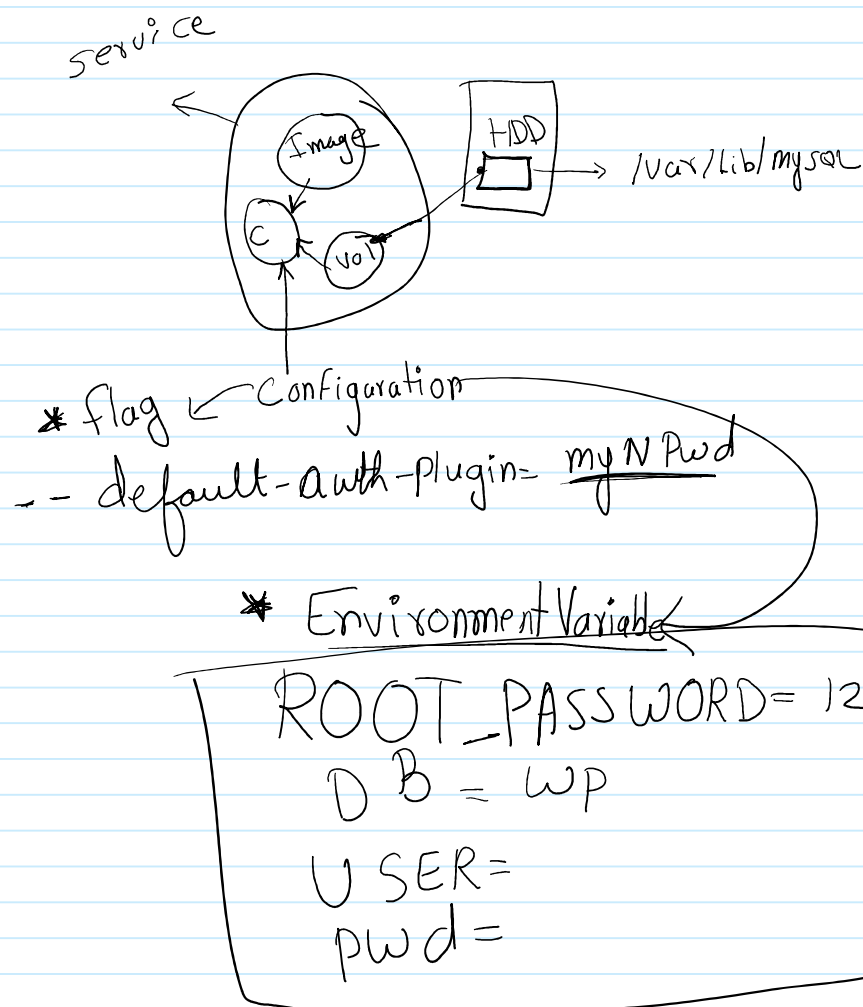 service
Image
HDD
/var/Lib/mysql
C
Vol
Configuration
* flag
-- default-auth-plugin= myNPwd
* Environment Variable
ROOT_PASSWORD= 12
DB = WP
USER=
pwd=